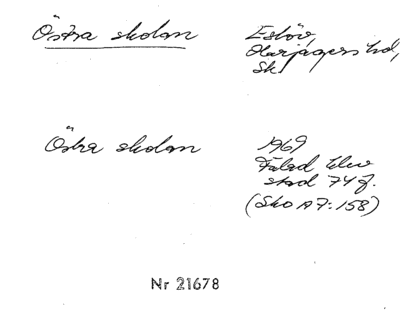 Östra skolan
Eslöv,
Harjagers hd,
Sk
Östra skolan
1969
stad 74 f.
(Sko A7:158)
Nr 21678